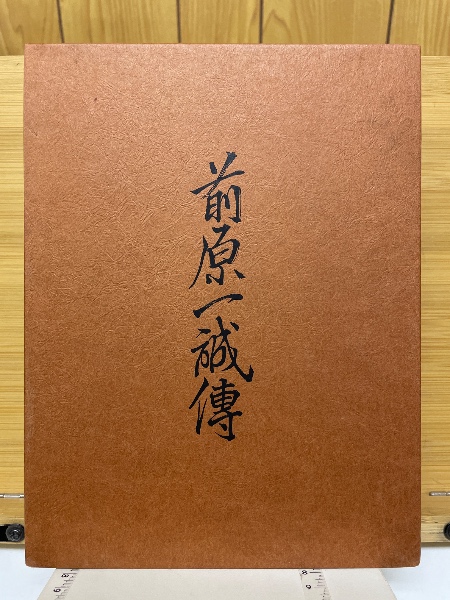 前原一誠傳